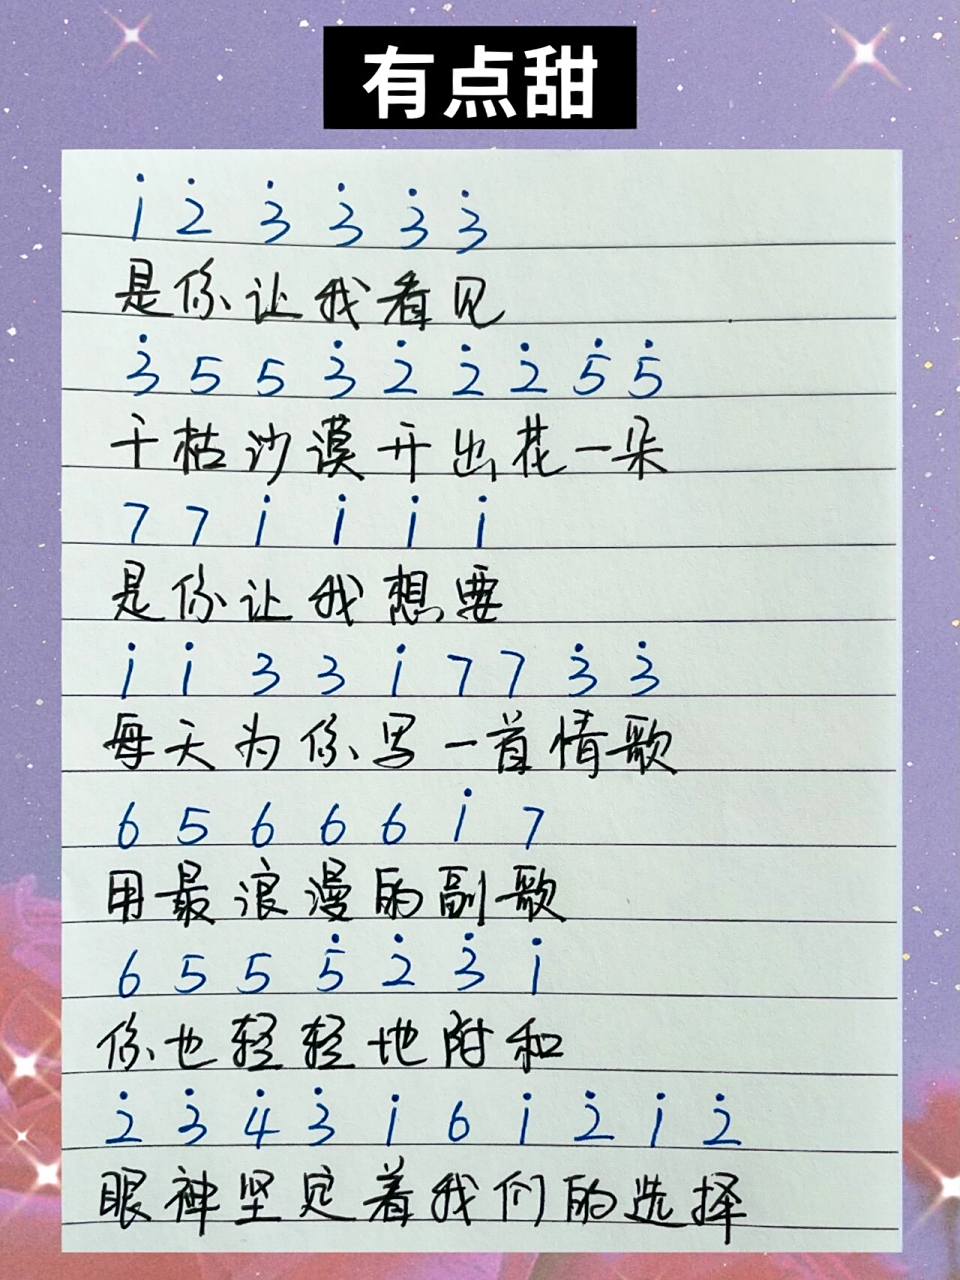 有点甜
1̇ 2̇ 3̇ 3̇ 3̇ 3̇
是你让我看见
3̇ 5 5 3̇ 2̇ 2̇ 2̇ 5̇ 5̇
干枯沙漠开出花一朵
7 7 1̇ 1̇ 1̇ 1̇
是你让我想要
1̇ 1̇ 3 3 1̇ 7 7 3̇ 3̇
每天为你写一首情歌
6 5 6 6 6 1̇ 7
用最浪漫的副歌
6 5 5 5̇ 2̇ 3̇ 1̇
你也轻轻地附和
2̇ 3̇ 4̇ 3̇ 1̇ 6 1̇ 2̇ 1̇ 2̇
眼神坚定着我们的选择